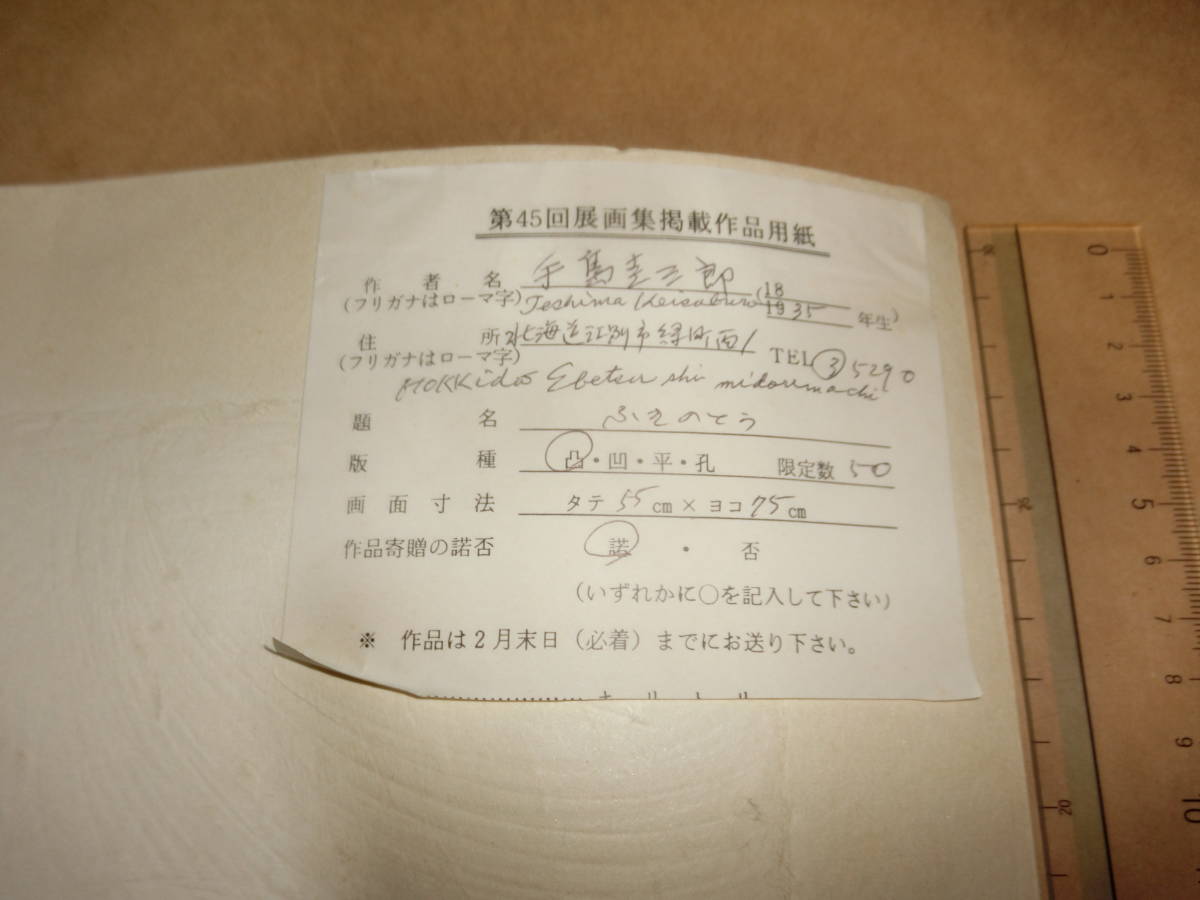 第45回展画集掲載作品用紙
作者名 手島圭三郎
(フリガナはローマ字) Teshima Keisaburo (18 1935 年生)
住所 北海道江別市緑町西1
(フリガナはローマ字) TEL ③5290
HOKKido Ebetsu shi midorimachi
題名 ふきのとう
版種 凸・凹・平・孔 限定数 50
画面寸法 タテ 55 cm × ヨコ 75 cm
作品寄贈の諾否 諾・否
(いずれかに○を記入して下さい)
※ 作品は2月末日(必着)までにお送り下さい。
0
1
2
3
4
5
6
7
8
9
10
20